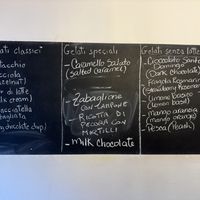 ati classici
tacchio
ciola
azelnut)
r di latte
lk cream)
acciatella
agliata
y chocolate chip)
Gelati speciali
- Caramello Salato
(salted caramel)
- Zabaglione
con lampone
- Ricotta di
pecora con
mirtilli
- Milk chocolate
Gelati senza latte
- Cioccolato Santo
Domingo
(Dark chocolate)
- Fragola
- Limone basilico
(lemon basil)
- Mango arancia
(mango orange)
- Pesca (Peach)